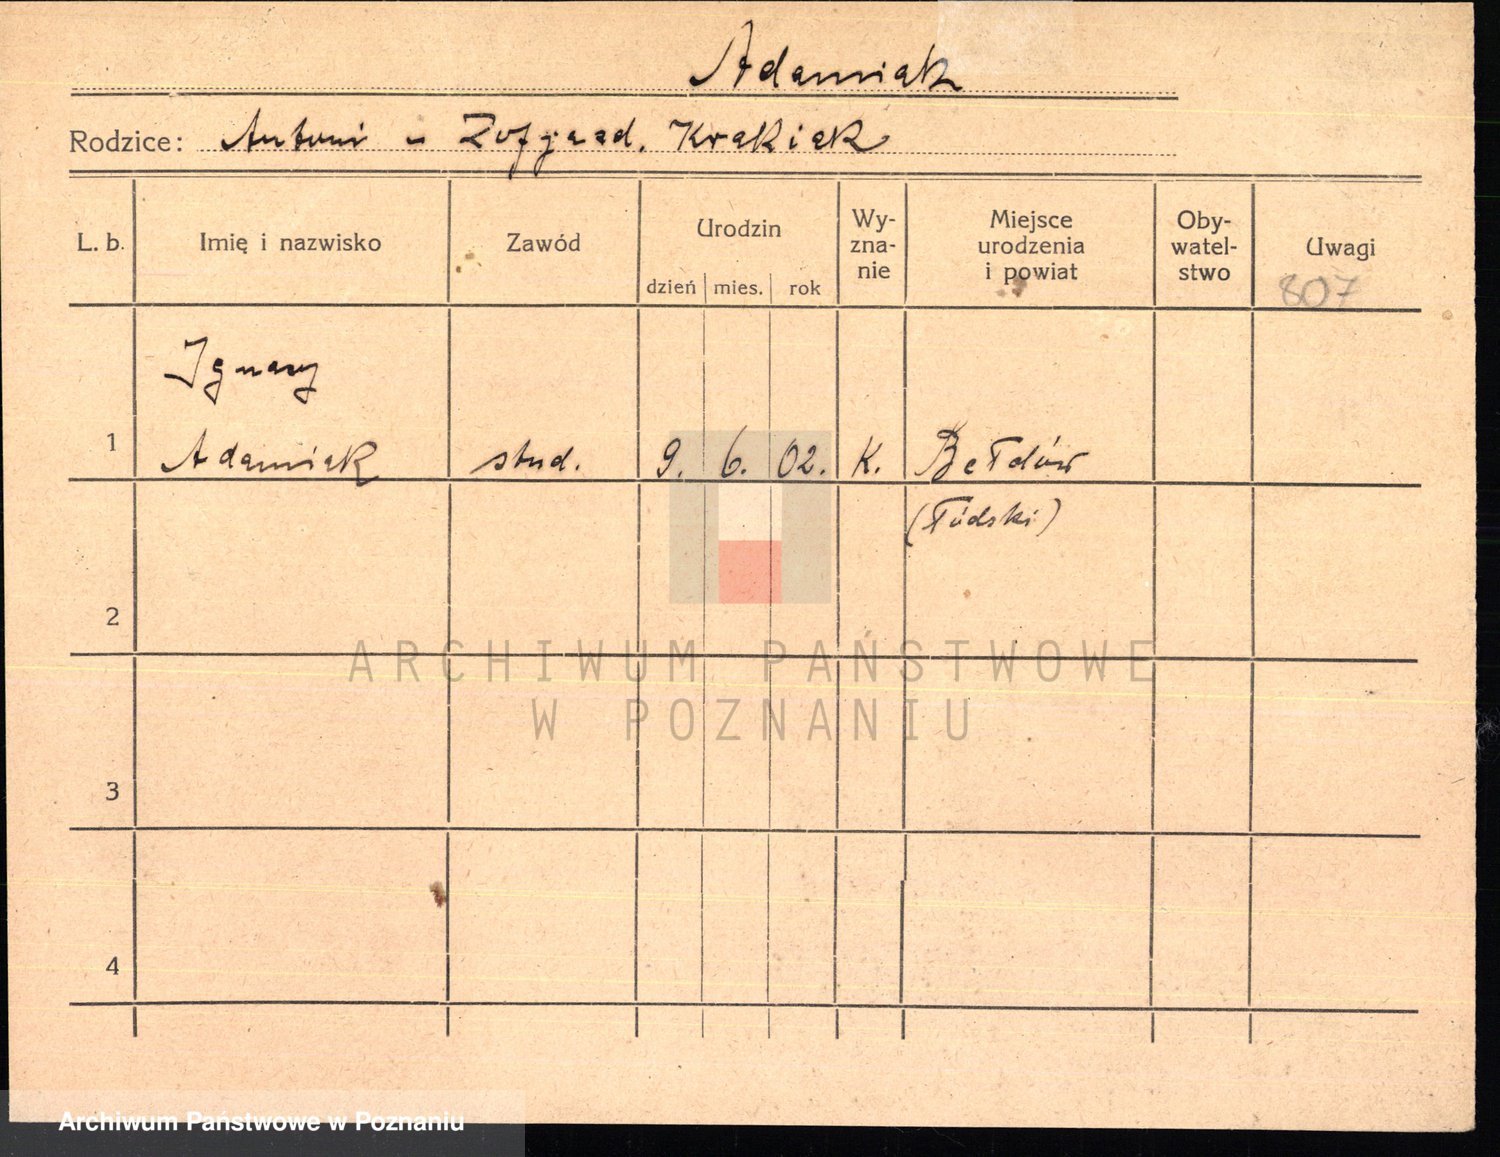 Adamiak
Rodzice: Antoni - Zofja zd. Krakiak
L. b. Imię i nazwisko Zawód Urodzin dzień mies. rok Wy-zna-nie Miejsce urodzenia i powiat Oby-watel-stwo Uwagi
807
Ignacy
1 Adamiak stud. 9. 6. 02. K. Bełdów
(Łódski)
2
ARCHIWUM PAŃSTWOWE
W POZNANIU
3
4
Archiwum Państwowe w Poznaniu